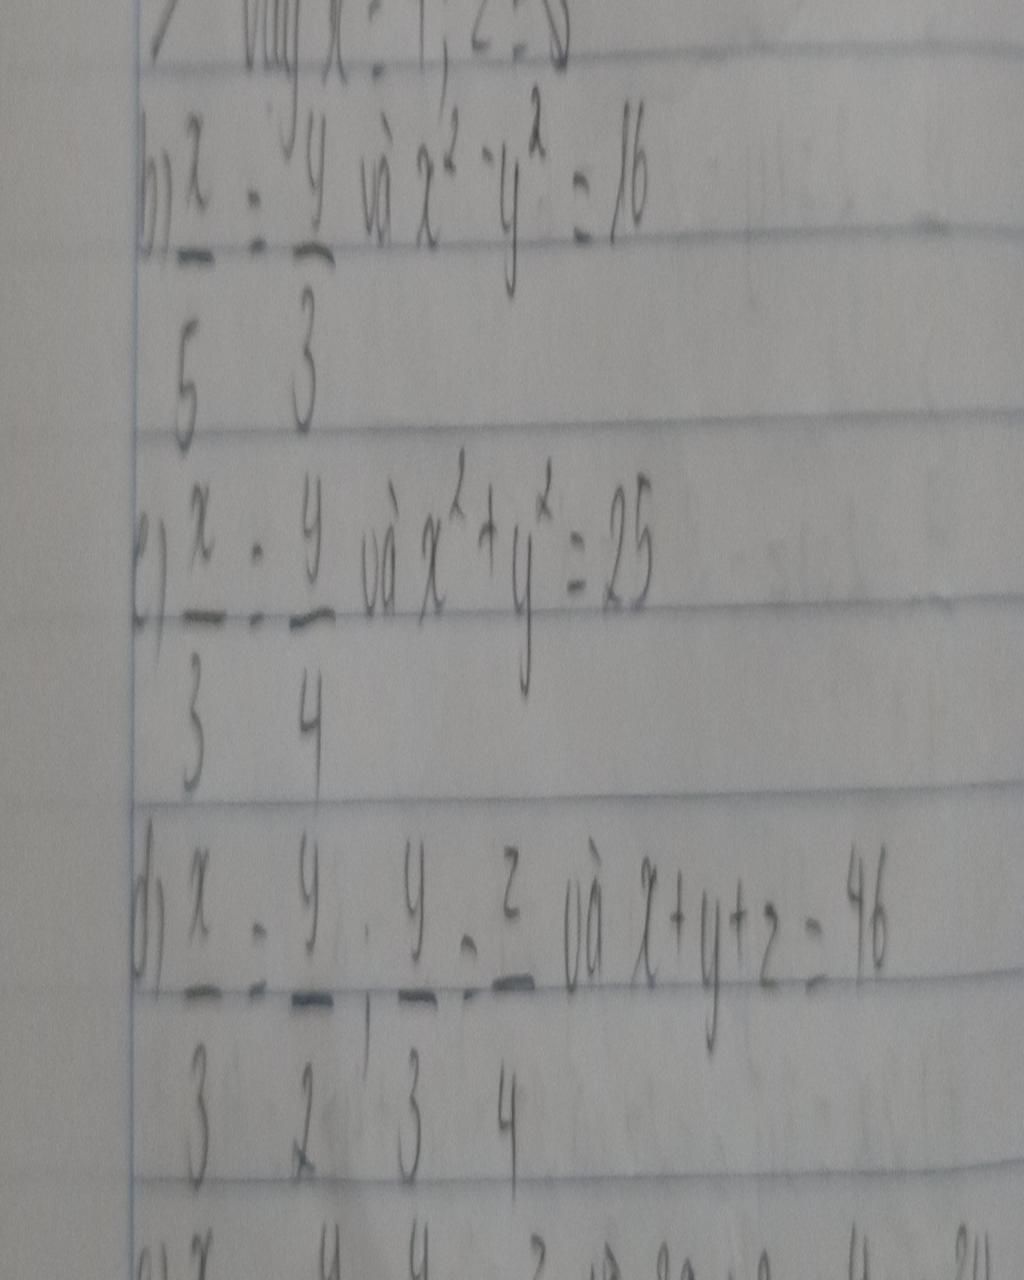 b) x/5 = y/3 và x² - y² = 16
c) x/3 = y/4 và x² + y² = 25
d) x/3 = y/2 ; y/3 = z/4 và x + y + z = 46